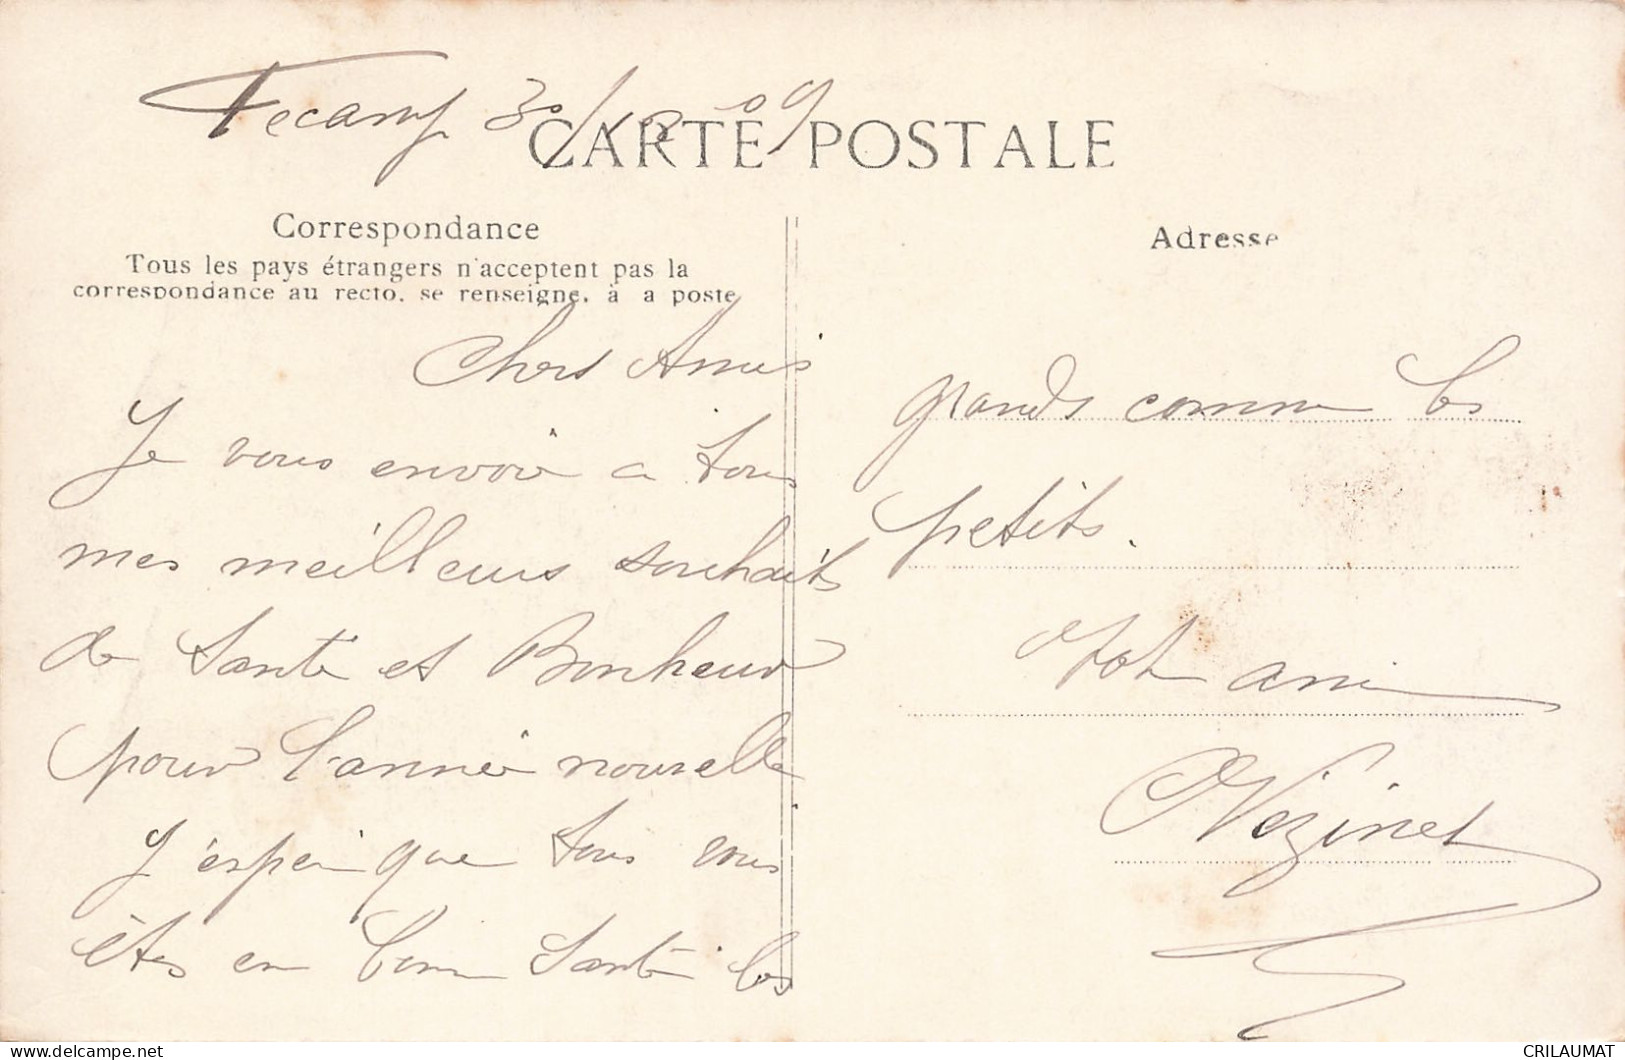 Fecamp 30/12 09
CARTE POSTALE
Correspondance
Tous les pays étrangers n'acceptent pas la
correspondance au recto. se renseigne. à a poste
Adresse
Chers Amis
Je vous envoie a tous
mes meilleurs souhaits
de Santé et Bonheur
pour l'année nouvelle
J'espère que tous vous
êtes en bonne Santé les
grands comme les
petits.
ami
Vezinet
delcampe.net
CRILAUMAT